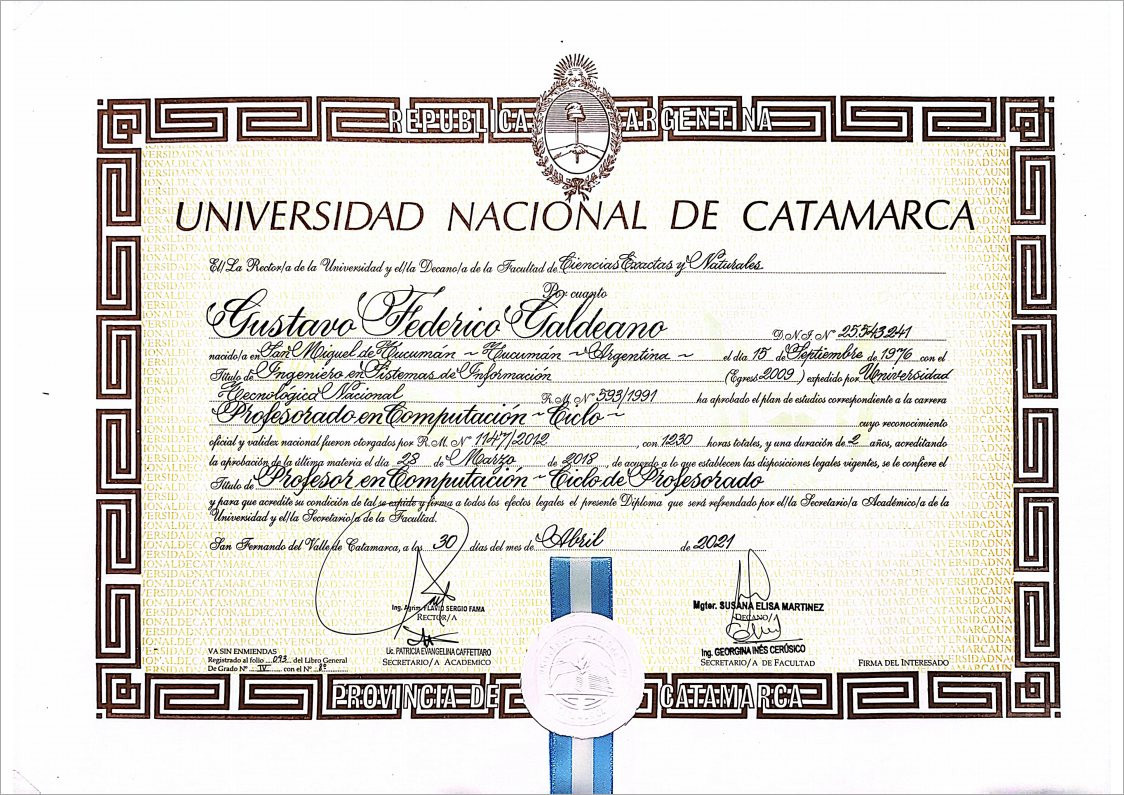 REPUBLICA ARGENTINA
UNIVERSIDAD NACIONAL DE CATAMARCA
El/La Rector/a de la Universidad y el/la Decano/a de la Facultad de Ciencias Exactas y Naturales
Por cuanto
Gustavo Federico Galdeano D.N.I. N° 25.543.241
nacido/a en San Miguel de Tucumán ~ Tucumán ~ Argentina ~ el día 15 de Septiembre de 1976 con el
Título de Ingeniero en Sistemas de Información (Egresó 2009) expedido por Universidad
Tecnológica Nacional R.M. N° 593/1991 ha aprobado el plan de estudios correspondiente a la carrera
Profesorado en Computación ~ Ciclo ~ cuyo reconocimiento
oficial y validez nacional fueron otorgados por R.M. N° 1147/2012, con 1230 horas totales, y una duración de 2 años, acreditando
la aprobación de la última materia el día 28 de Marzo de 2018, de acuerdo a lo que establecen las disposiciones legales vigentes, se le confiere el
Título de Profesor en Computación ~ Ciclo de Profesorado
y para que acredite su condición de tal se expide y firma a todos los efectos legales el presente Diploma que será refrendado por el/la Secretario/a Académico/a de la
Universidad y el/la Secretario/a de la Facultad.
San Fernando del Valle de Catamarca, a los 30 días del mes de Abril de 2021
Ing. Agrim. FLAVIO SERGIO FAMA
RECTOR/A
Mgter. SUSANA ELISA MARTINEZ
DECANO/A
Lic. PATRICIA EVANGELINA CAFFETTARO
SECRETARIO/A ACADEMICO
Ing. GEORGINA INÉS CERÚSICO
SECRETARIO/A DE FACULTAD
FIRMA DEL INTERESADO
VA SIN ENMIENDAS
Registrado al folio 093 del Libro General
De Grado N° IV con el N°
PROVINCIA DE CATAMARCA